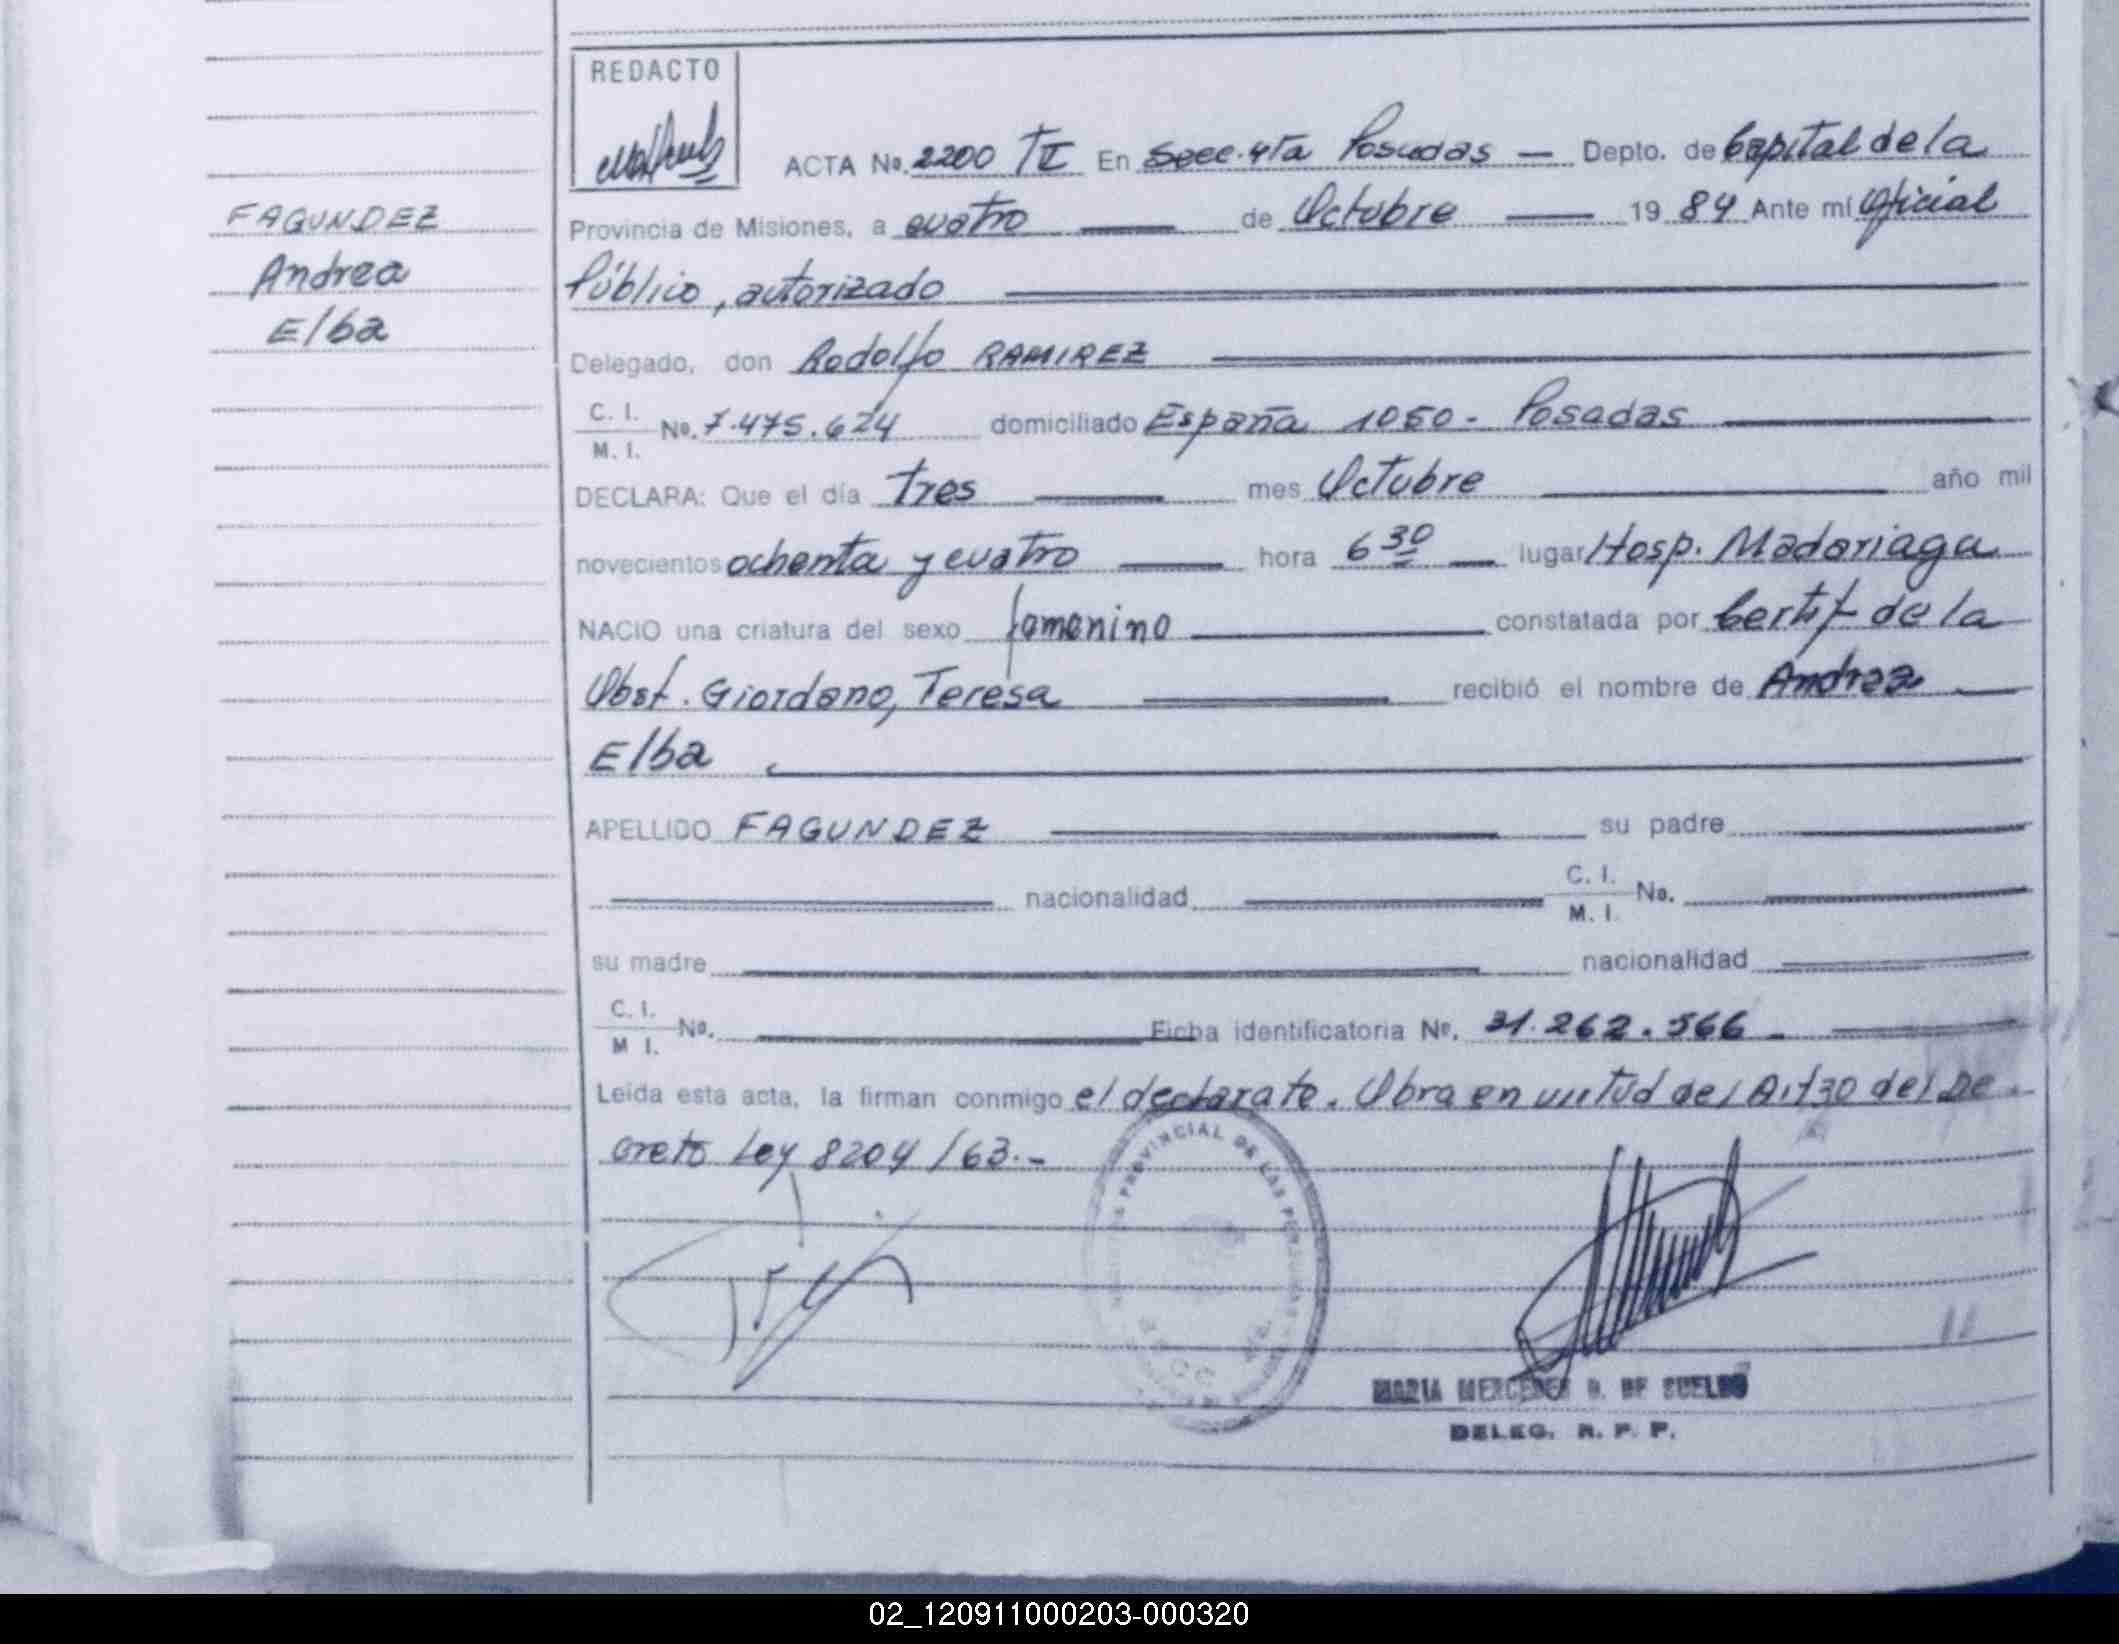 REDACTO
ACTA No. 2200 T II En Secc. 4ta Posadas — Depto. de Capital de la
Provincia de Misiones, a cuatro — de Octubre — 19 84 Ante mí Oficial
Público, autorizado
Delegado, don Rodolfo RAMIREZ
C. I.
M. I. No. 7.475.624 domiciliado España 1050 - Posadas
DECLARA: Que el día tres — mes Octubre — año mil
novecientos ochenta y cuatro — hora 6 30 — lugar Hosp. Madariaga
NACIO una criatura del sexo femenino — constatada por Certif de la
Obst. Giordano, Teresa — recibió el nombre de Andrea —
Elba
APELLIDO FAGUNDEZ — su padre
nacionalidad C. I. M. I. No.
su madre nacionalidad
C. I. M I. No. Ficha identificatoria No. 31.262.566 -
Leída esta acta, la firman conmigo el declarate. Obra en virtud del Art 30 del De
creto Ley 8204/63.-
FAGUNDEZ
Andrea
Elba
PROVINCIAL DE LAS PERSONAS
MARIA MERCEDES D. DE SUELDO
DELEG. R. P. P.
02_120911000203-000320